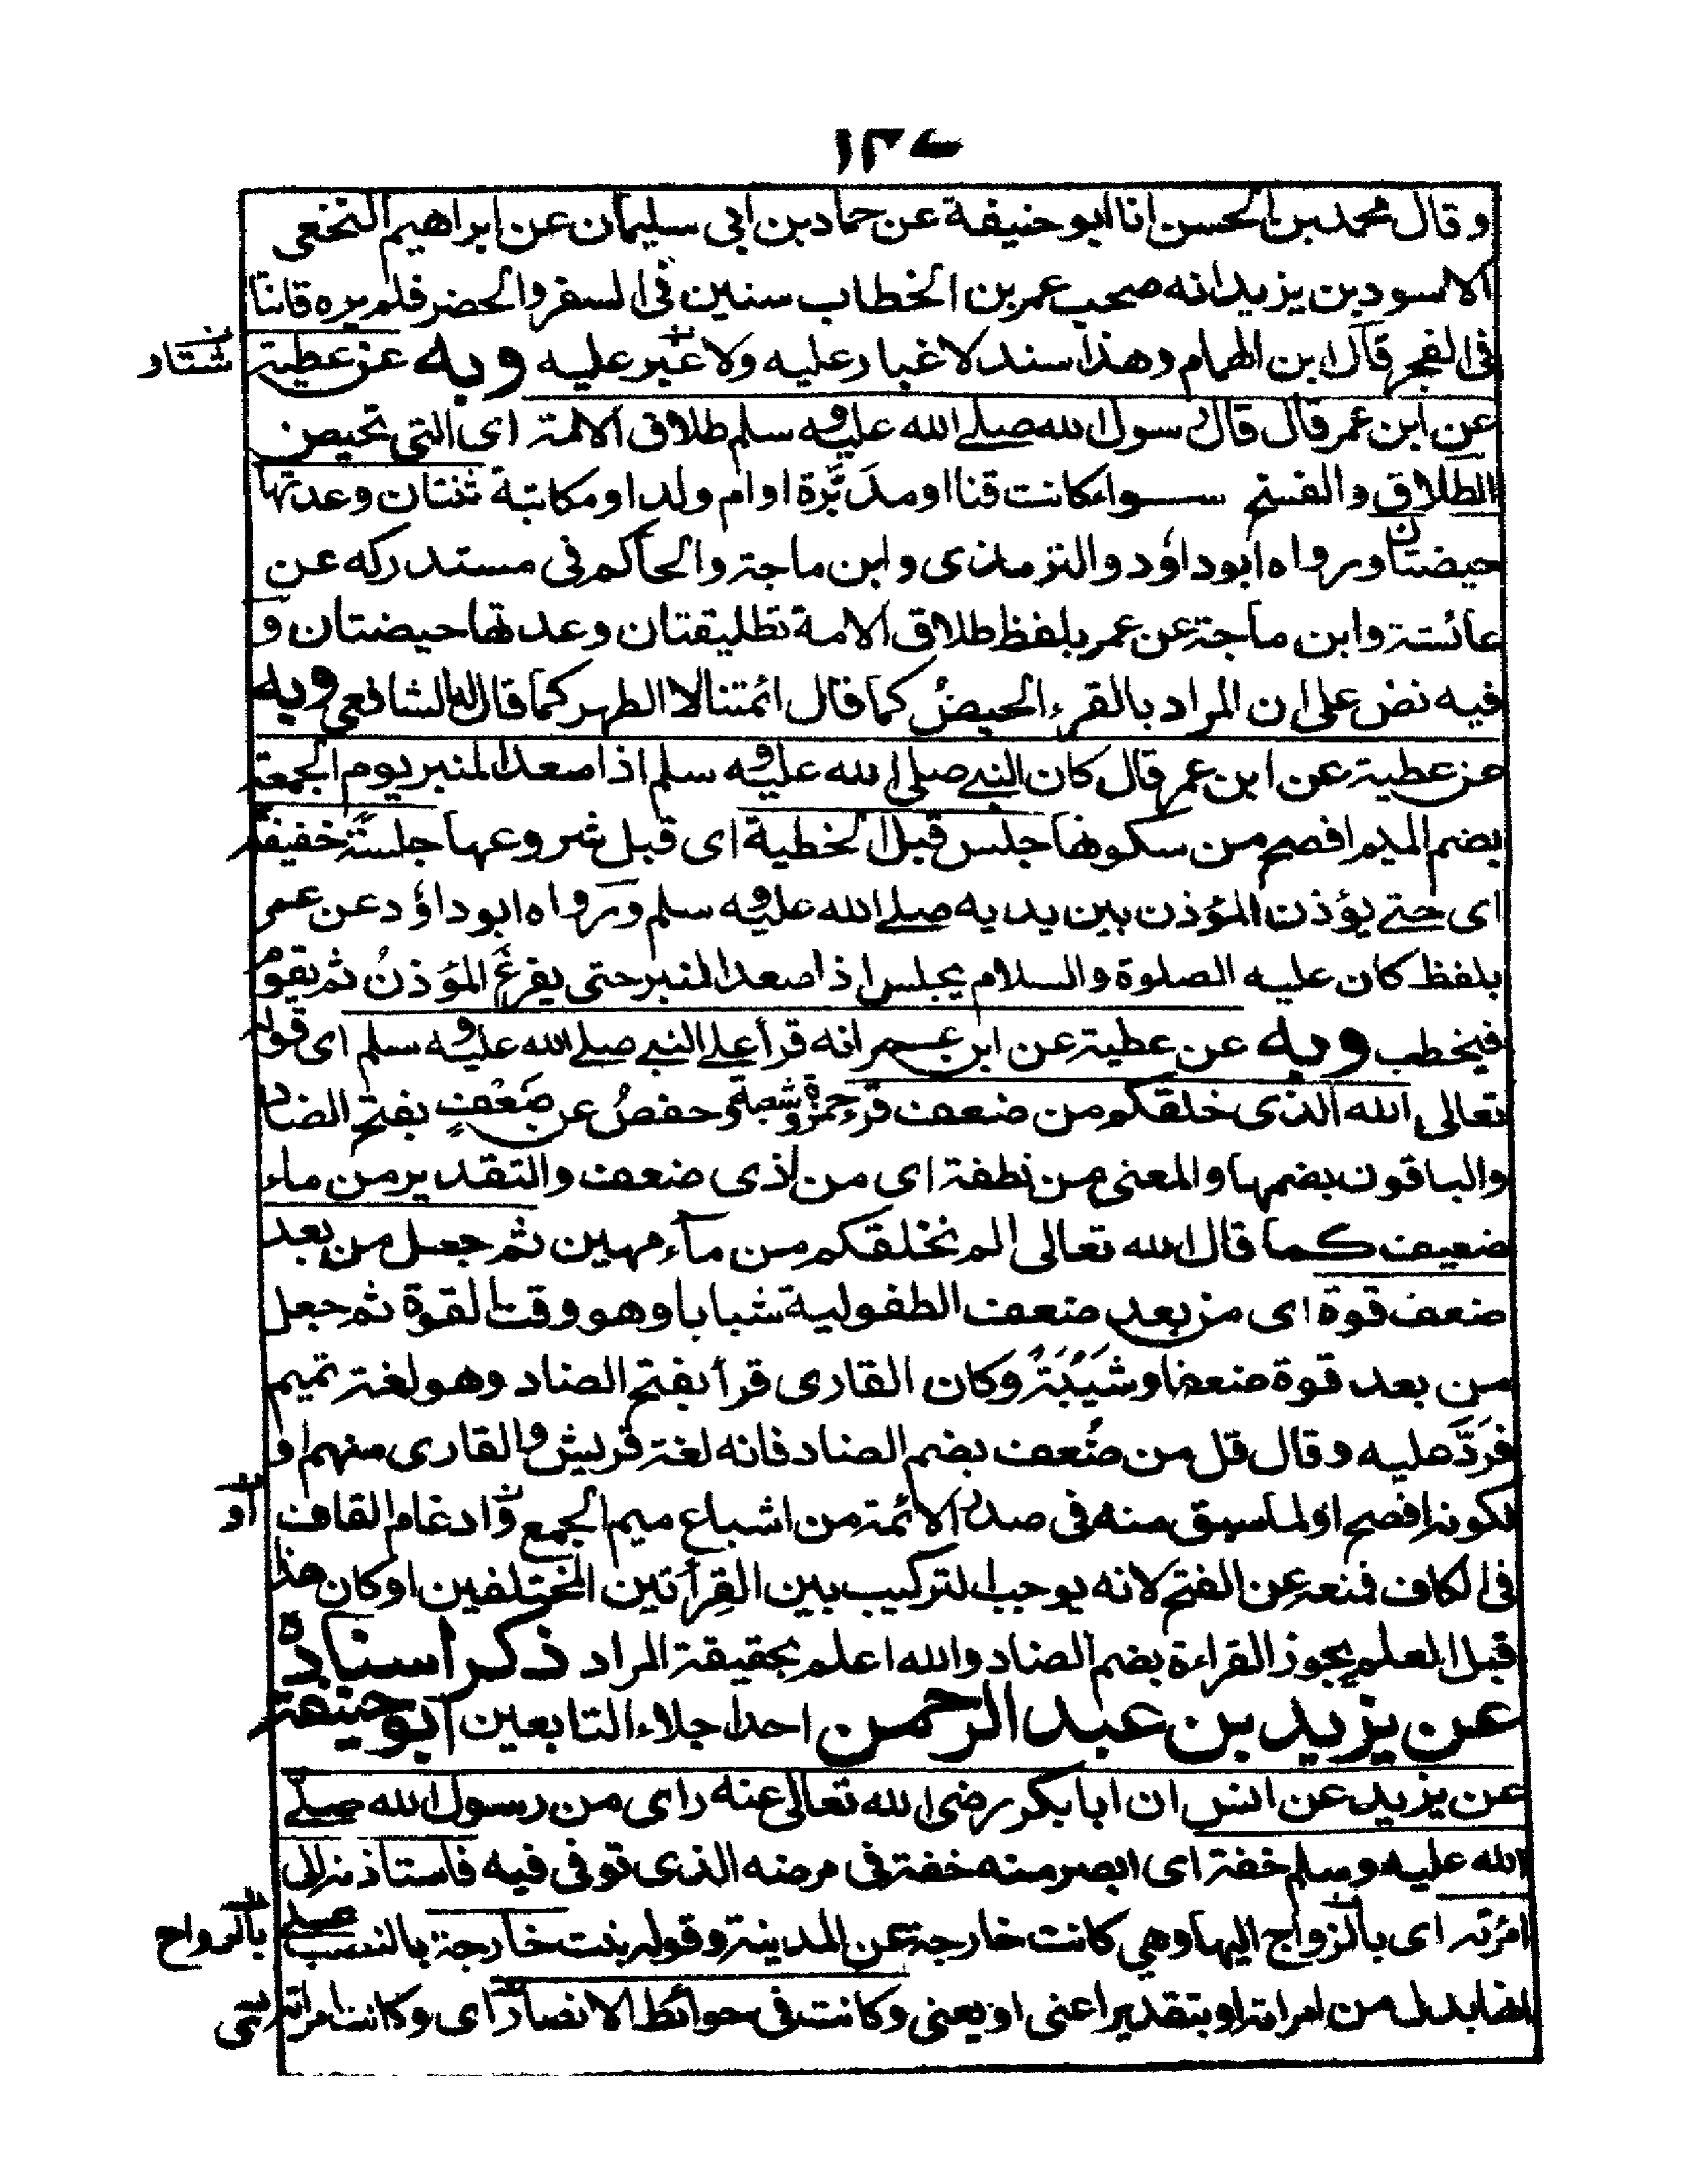 ١٣٧
وقال محمد بن الحسن انا ابو حنيفة عن حماد بن ابى سليمان عن ابراهيم النخعى
الاسود بن يزيد انه صحب عمر بن الخطاب سنين فى السفر والحضر فلم يره قانتا
فى الفجر قال ابن الهمام وهذا سند لا غبار عليه ولا غبر عليه وبه عن عطية
عن ابن عمر قال قال رسول الله صلے الله عليه وسلم طلاق الامة اى التى تحيض
الطلاق والفسخ سواء كانت قنا او مدَبَّرة او ام ولد او مكاتبة ثنتان وعدتها
حيضتان ورواه ابو داؤد والترمذى وابن ماجة والحاكم فى مستدركه عن
عائشة وابن ماجة عن عمر بلفظ طلاق الامة تطليقتان وعدتها حيضتان و
فيه نص على ان المراد بالقرء الحيضُ كما قال ائمتنا لا الطهر كما قاله الشافعى وبه
عن عطية عن ابن عمر قال كان النبے صلى الله عليه وسلم اذا صعد المنبر يوم الجمعة
بضم الميم افصح من سكونها جلس قبل الخطبة اى قبل شروعها جلسة خفيفة
اى حتے يؤذن المؤذن بين يديه صلے الله عليه وسلم ورواه ابو داؤد عن عمر
بلفظ كان عليه الصلوة والسلام يجلس اذا صعد المنبر حتى يفرغَ المؤذنُ ثم يقوم
فيخطب وبه عن عطية عن ابن عمر انه قرأ علے النبے صلے الله عليه وسلم اى قوله
تعالى الله الذى خلقكم من ضعف قرء حمزة وشعبة وحفصُ عن ضَعْفٍ بفتح الضاد
والباقون بضمها والمعنى من نطفة اى من ذى ضعف والتقدير من ماء
ضعيف كما قال الله تعالى الم نخلقكم من مآء مهين ثم جعل من بعد
ضعف قوة اى من بعد ضعف الطفولية شبابا وهو وقت القوة ثم جعل
من بعد قوة ضعفا وشَيْبَةً وكان القارى قرأ بفتح الضاد وهو لغة تميم
فرَدَّ عليه وقال قل من ضُعف بضم الضاد فانه لغة قريش والقارى منهم او
لكونه افصح او لما سبق منه فى صدر الائمة من اشباع ميم الجمع وادغام القاف
فى الكاف فمنعه عن الفتح لانه يوجب التركيب بين القِرأتين المختلفين او كان هذا
قبل العلم يجوز القراءة بضم الضاد والله اعلم بحقيقة المراد ذكر اسناده
عن يزيد بن عبد الرحمن احد اجلاء التابعين ابو حنيفة
عن يزيد عن انس ان ابا بكر رضى الله تعالى عنه راى من رسول الله صلے
الله عليه وسلم خفة اى ابصر منه خفة فى مرضه الذى توفى فيه فاستاذنه الى
امرٔته اى بالزواج اليها وهي كانت خارجة عن المدينة وقوله بنت خارجة بالنصب
ايضا بدل من امراته او بتقدير اعنى او يعنى وكانت فى حوائط الانصار اى وكانت امراته
او
بالرواح